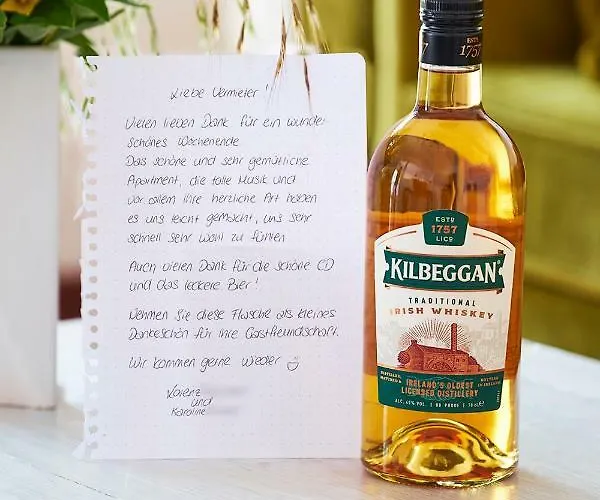 Liebe Vermieter!
Vielen lieben Dank für ein wunder-
schönes Wochenende
Das schöne und sehr gemütliche
Apartment, die tolle Musik und
vor allem Ihre herzliche Art haben
es uns leicht gemacht, uns sehr
schnell sehr wohl zu fühlen
Auch vielen Dank für die schöne CD
und das leckere Bier!
Nehmen Sie diese Flasche als kleines
Dankeschön für Ihre Gastfreundschaft.
Wir kommen gerne wieder
Lorenz
und
Karoline
ESTD
1757
ESTD
1757
LICD
KILBEGGAN
TRADITIONAL
IRISH WHISKEY
IRELAND'S OLDEST
LICENSED DISTILLERY
ALC. 40% VOL. | 80 PROOF | 70 cl